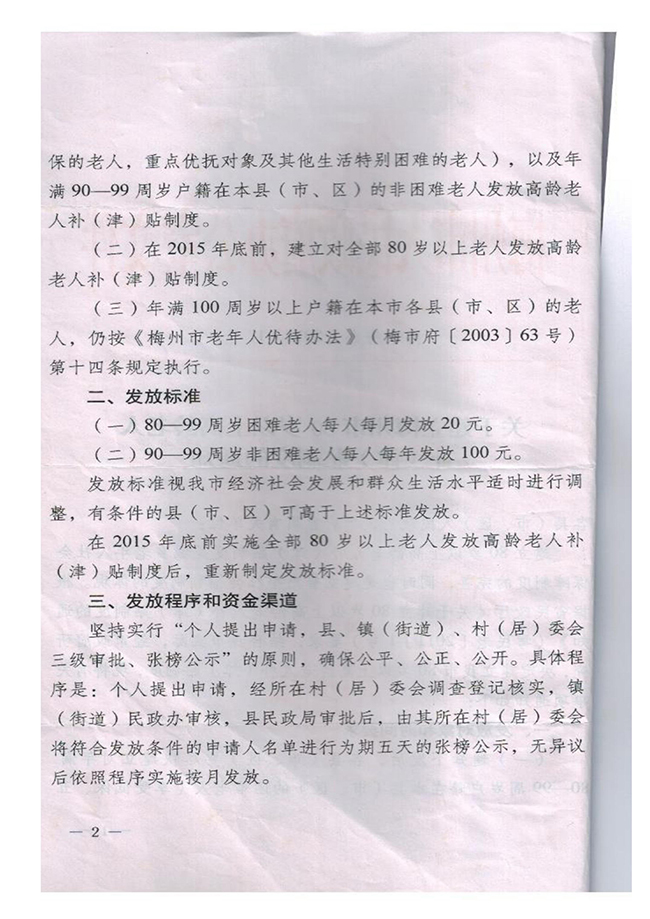 保的老人，重点优抚对象及其他生活特别困难的老人），以及年
满90—99周岁户籍在本县（市、区）的非困难老人发放高龄老
人补（津）贴制度。
（二）在2015年底前，建立对全部80岁以上老人发放高龄
老人补（津）贴制度。
（三）年满100周岁以上户籍在本市各县（市、区）的老
人，仍按《梅州市老年人优待办法》（梅市府〔2003〕63号）
第十四条规定执行。
二、发放标准
（一）80—99周岁困难老人每人每月发放20元。
（二）90—99周岁非困难老人每人每年发放100元。
发放标准视我市经济社会发展和群众生活水平适时进行调
整，有条件的县（市、区）可高于上述标准发放。
在2015年底前实施全部80岁以上老人发放高龄老人补
（津）贴制度后，重新制定发放标准。
三、发放程序和资金渠道
坚持实行“个人提出申请，县、镇（街道）、村（居）委会
三级审批、张榜公示”的原则，确保公平、公正、公开。具体程
序是：个人提出申请，经所在村（居）委会调查登记核实，镇
（街道）民政办审核，县民政局审批后，由其所在村（居）委会
将符合发放条件的申请人名单进行为期五天的张榜公示，无异议
后依照程序实施按月发放。
— 2 —